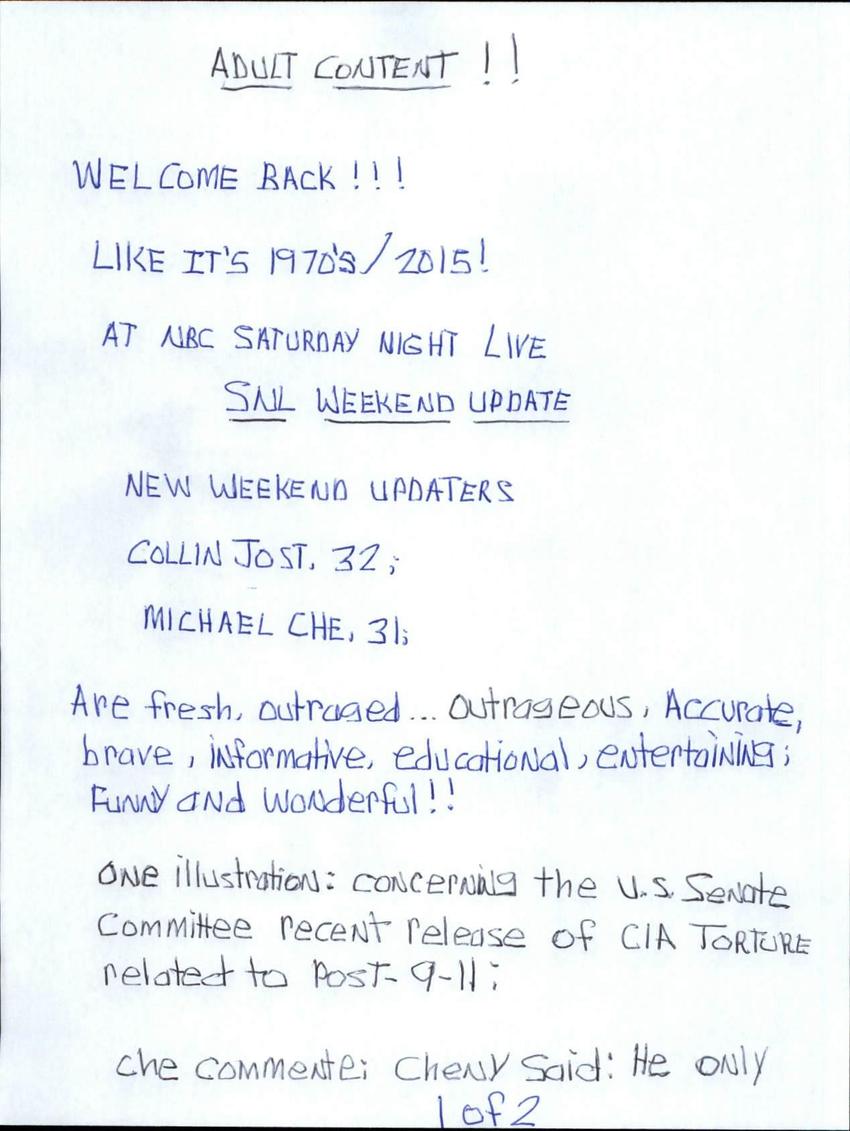 ADULT CONTENT !!
WELCOME BACK !!!
LIKE IT'S 1970'S/2015!
AT NBC SATURDAY NIGHT LIVE
SNL WEEKEND UPDATE
NEW WEEKEND UPDATERS
COLLIN JOST, 32;
MICHAEL CHE, 31;
Are fresh, outraged... outrageous, Accurate,
brave, informative, educational, entertaining;
Funny and wonderful!!
One illustration: concerning the U.S. Senate
Committee recent release of CIA TORTURE
related to Post-9-11;
Che commente; Cheny Said: He only
1 of 2